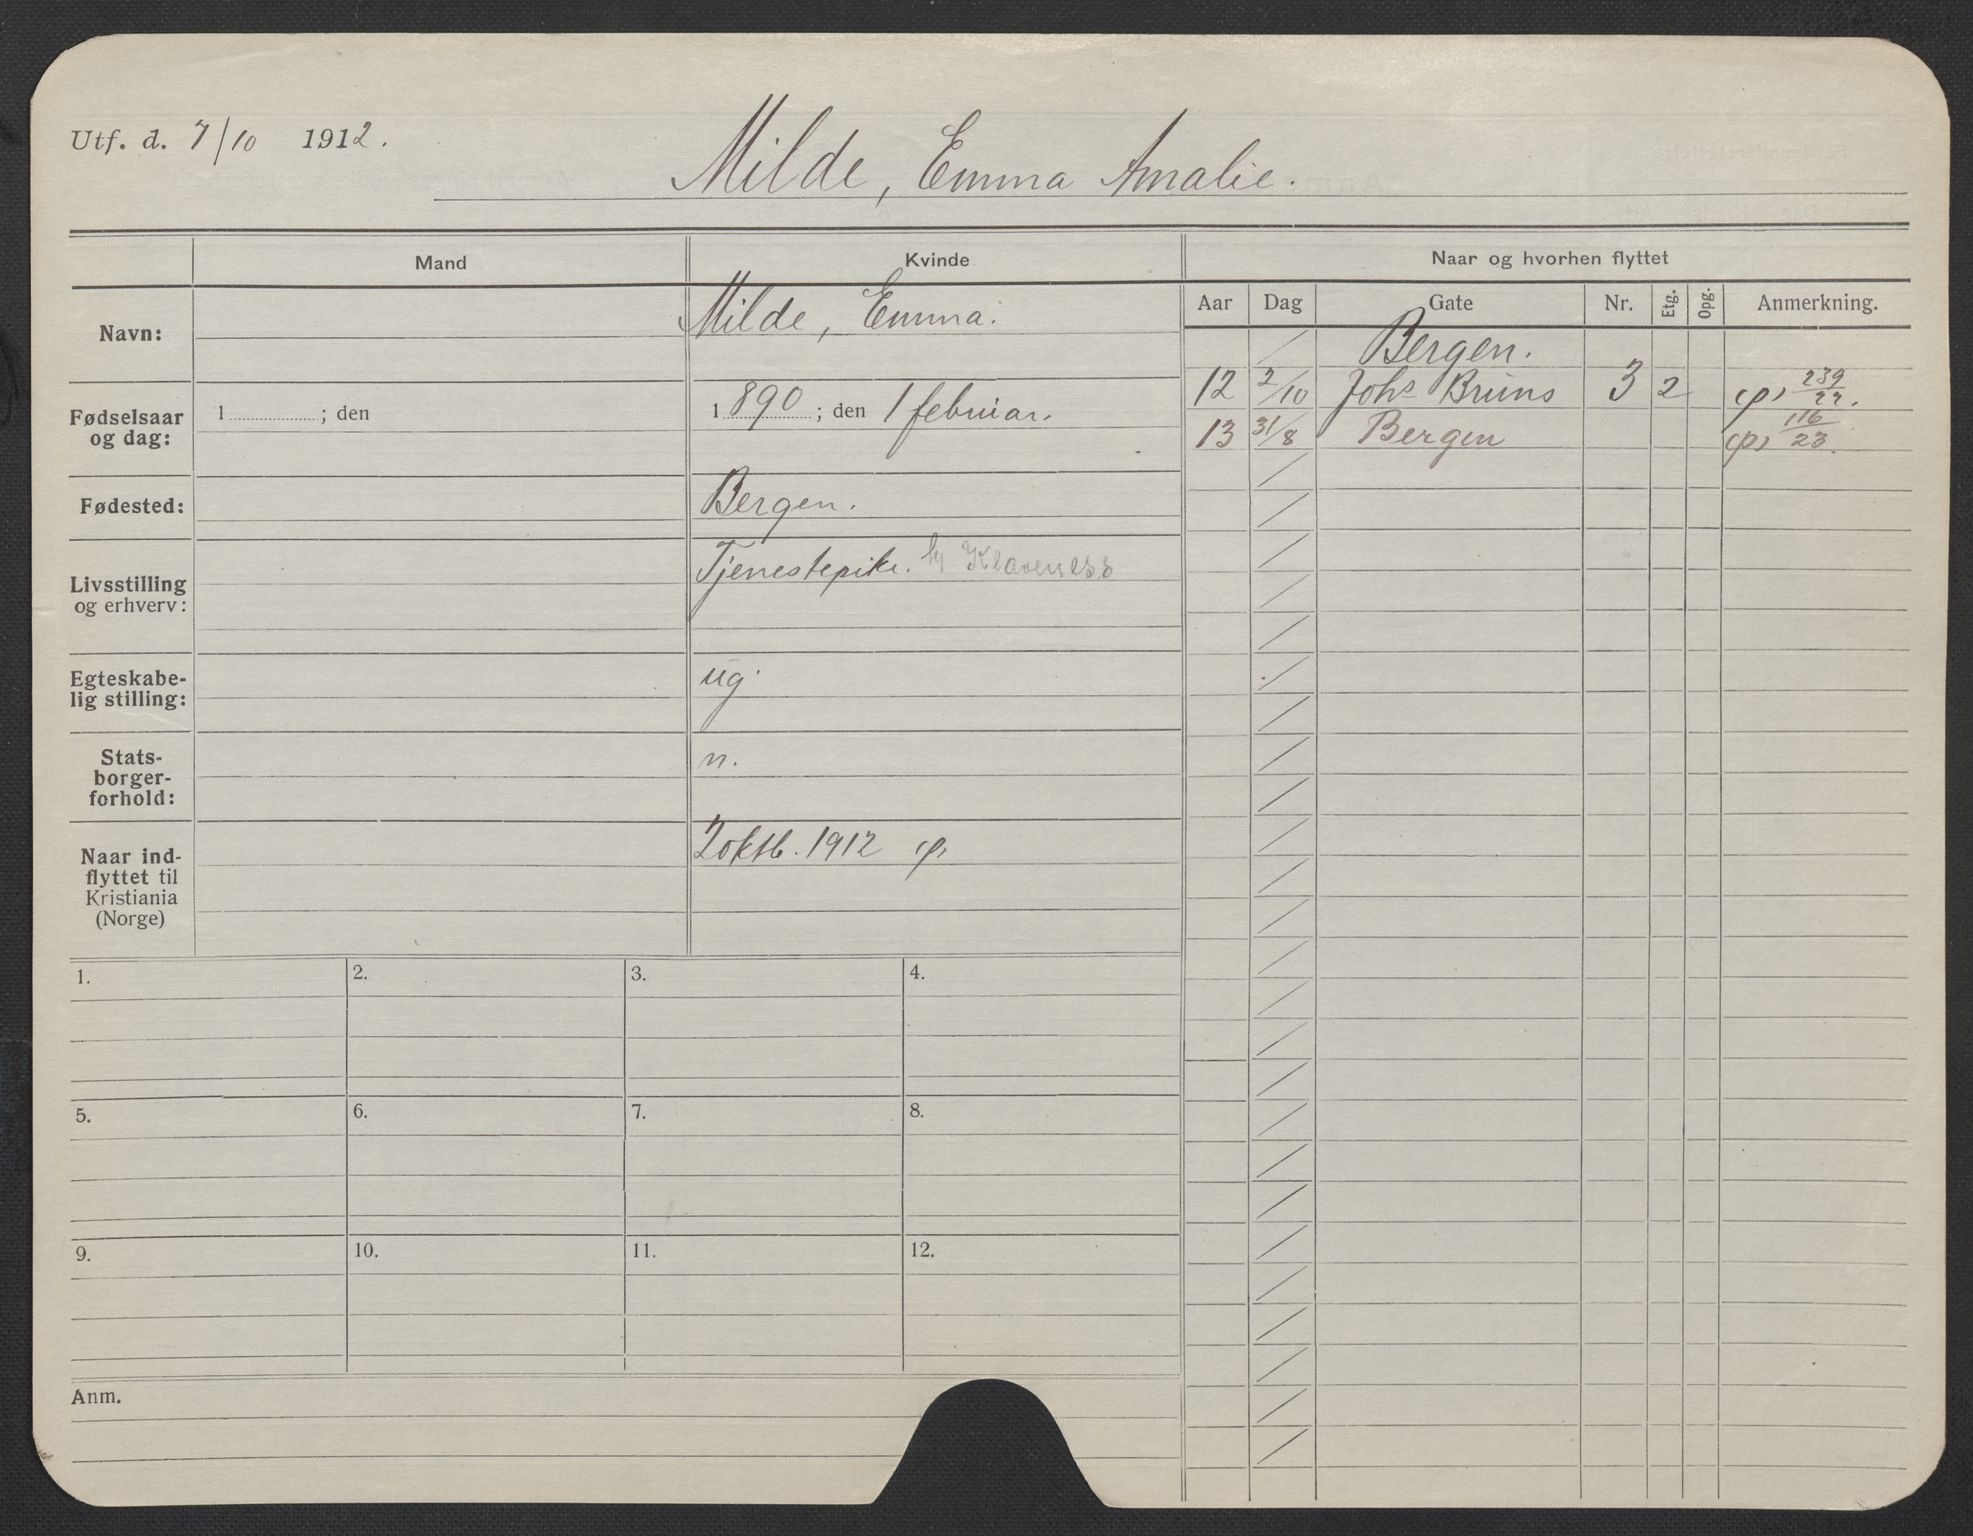 Utf. d. 7/10 1912.
Milde, Emma Amalie.
Mand
Kvinde
Naar og hvorhen flyttet
Navn:
Milde, Emma.
Fødselsaar og dag:
1 ; den
1890 ; den 1 februar.
Fødested:
Bergen.
Livsstilling og erhverv:
Tjenestepike. h/ Klaveness
Egteskabe-
lig stilling:
ug.
Stats-
borger-
forhold:
n.
Naar ind-
flyttet til
Kristiania
(Norge)
2 oktb. 1912
Aar Dag Gate Nr. Etg. Opg. Anmerkning.
Bergen.
12 2/10 Johs Bruns 3 2 239/22.
13 31/8 Bergen 116/23.
1. 2. 3. 4.
5. 6. 7. 8.
9. 10. 11. 12.
Anm.